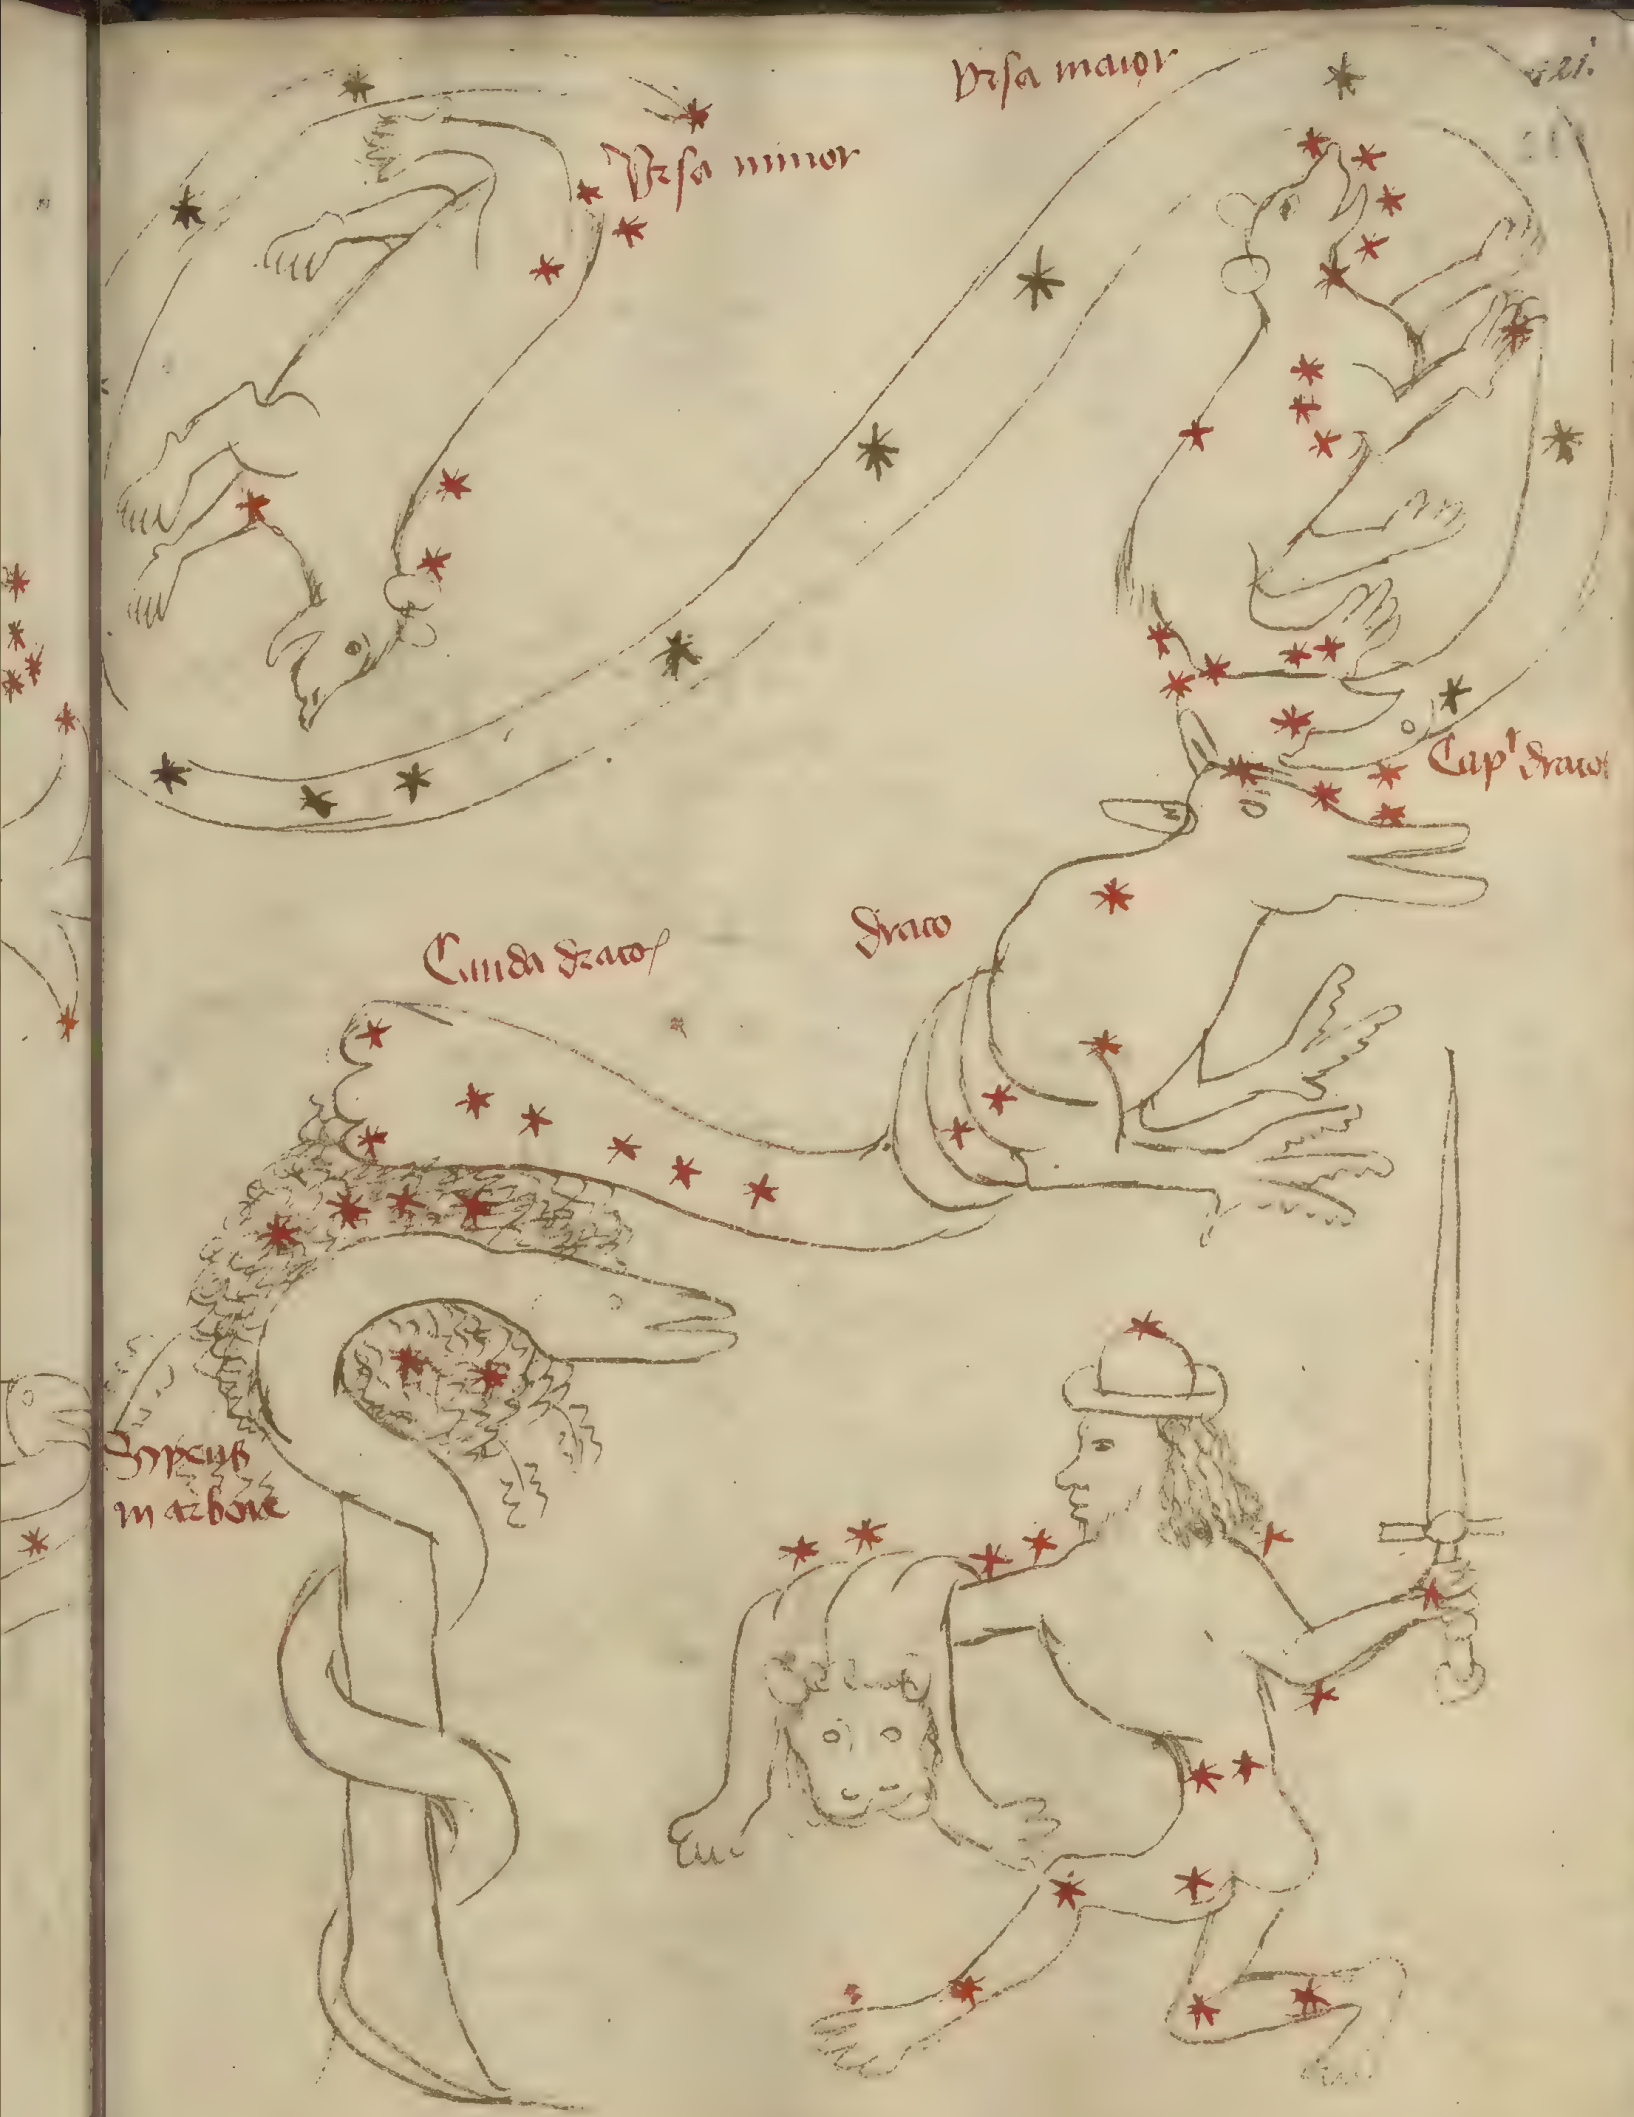 Vrsa maior
Vrsa minor
Cap' draco
draco
Cauda draco
Serpens
in arbore